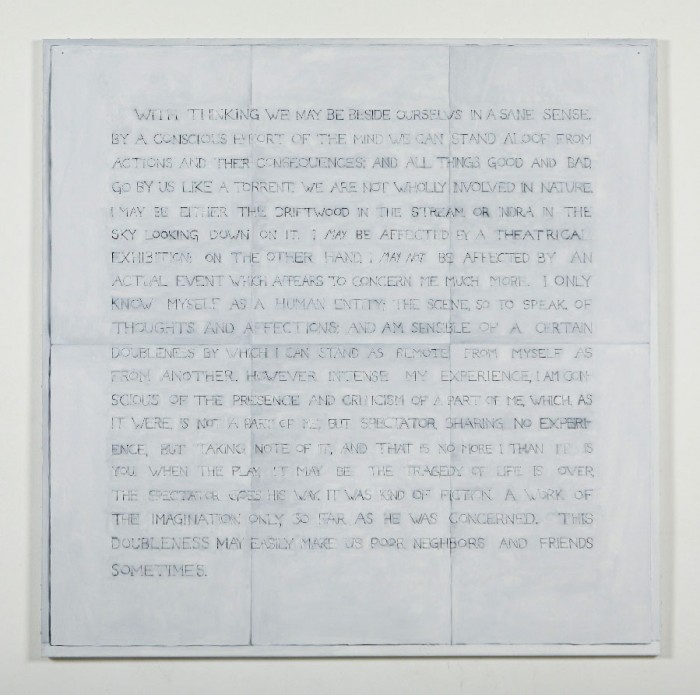 WITH THINKING WE MAY BE BESIDE OURSELVS IN A SANE SENSE.
BY A CONSCIOUS EFFORT OF THE MIND WE CAN STAND ALOOF FROM
ACTIONS AND THEIR CONSEQUENCES; AND ALL THINGS GOOD AND BAD,
GO BY US LIKE A TORRENT. WE ARE NOT WHOLLY INVOLVED IN NATURE.
I MAY BE EITHER THE DRIFTWOOD IN THE STREAM, OR INDRA IN THE
SKY LOOKING DOWN ON IT. I MAY BE AFFECTED BY A THEATRICAL
EXHIBITION; ON THE OTHER HAND, I MAY NOT BE AFFECTED BY AN
ACTUAL EVENT WHICH APPEARS TO CONCERN ME MUCH MORE. I ONLY
KNOW MYSELF AS A HUMAN ENTITY; THE SCENE, SO TO SPEAK, OF
THOUGHTS AND AFFECTIONS; AND AM SENSIBLE OF A CERTAIN
DOUBLENESS BY WHICH I CAN STAND AS REMOTE FROM MYSELF AS
FROM ANOTHER. HOWEVER INTENSE MY EXPERIENCE, I AM CON-
SCIOUS OF THE PRESENCE AND CRITICISM OF A PART OF ME, WHICH, AS
IT WERE, IS NOT A PART OF ME, BUT SPECTATOR, SHARING NO EXPERI-
ENCE, BUT TAKING NOTE OF IT, AND THAT IS NO MORE I THAN IT IS
YOU. WHEN THE PLAY, IT MAY BE THE TRAGEDY OF LIFE IS OVER,
THE SPECTATOR GOES HIS WAY. IT WAS KIND OF FICTION, A WORK OF
THE IMAGINATION ONLY, SO FAR AS HE WAS CONCERNED. THIS
DOUBLENESS MAY EASILY MAKE US POOR NEIGHBORS AND FRIENDS
SOMETIMES.